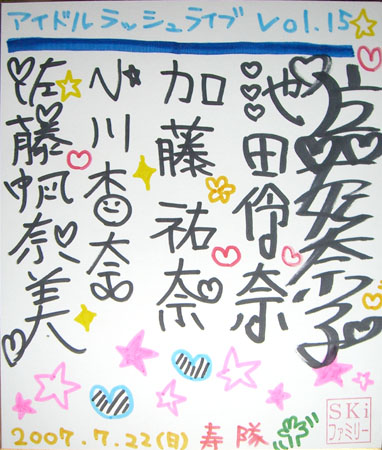 アイドルラッシュライブ Vol.15
池田伶奈
加藤祐奈
小川杏奈
佐藤帆奈美
2007.7.22(日) 寿隊
SKi
ファミリー